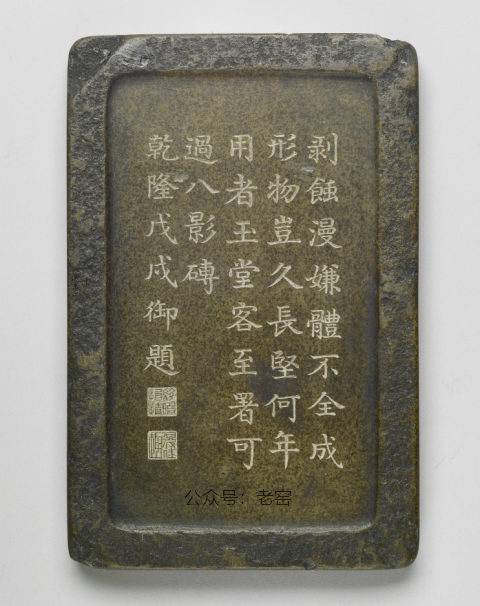 剥蝕漫嫌體不全成
形物豈久長堅何年
用者玉堂客至署可
過八影磚
乾隆戊戌御題
公众号：老窑